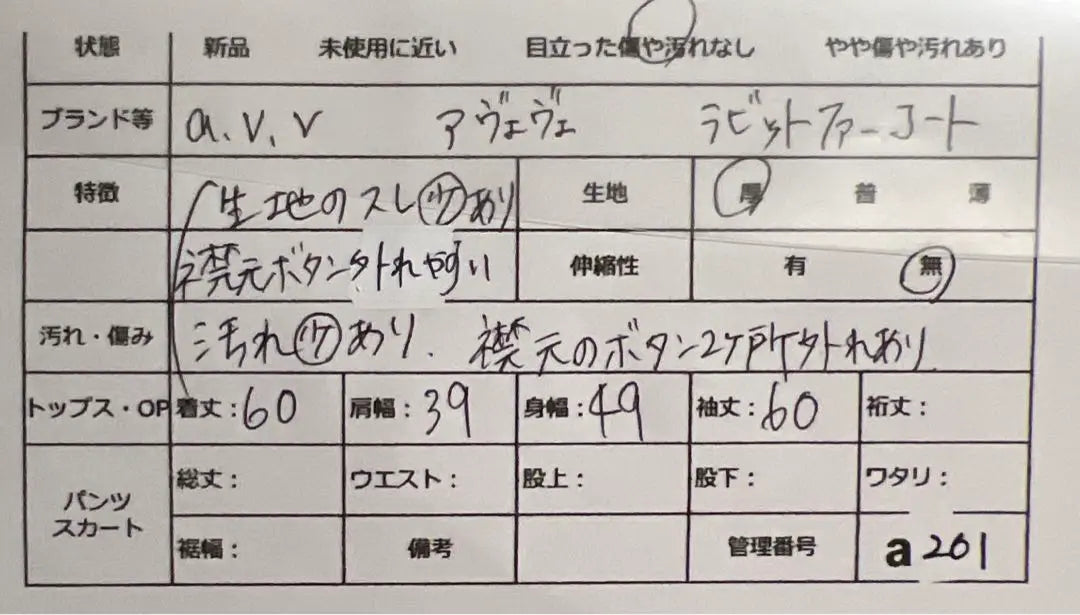 状態 新品 未使用に近い 目立った傷や汚れなし やや傷や汚れあり
ブランド等 a.v.v アヴェヴェ ラビットファーコート
特徴 生地のスレ少あり 生地 厚 普 薄
襟元ボタン外れやすい 伸縮性 有 無
汚れ・傷み 汚れ少あり. 襟元のボタン2ヶ所外れあり
トップス・OP 着丈:60 肩幅:39 身幅:49 袖丈:60 裄丈:
パンツ 総丈: ウエスト: 股上: 股下: ワタリ:
スカート 裾幅: 備考 管理番号 a201